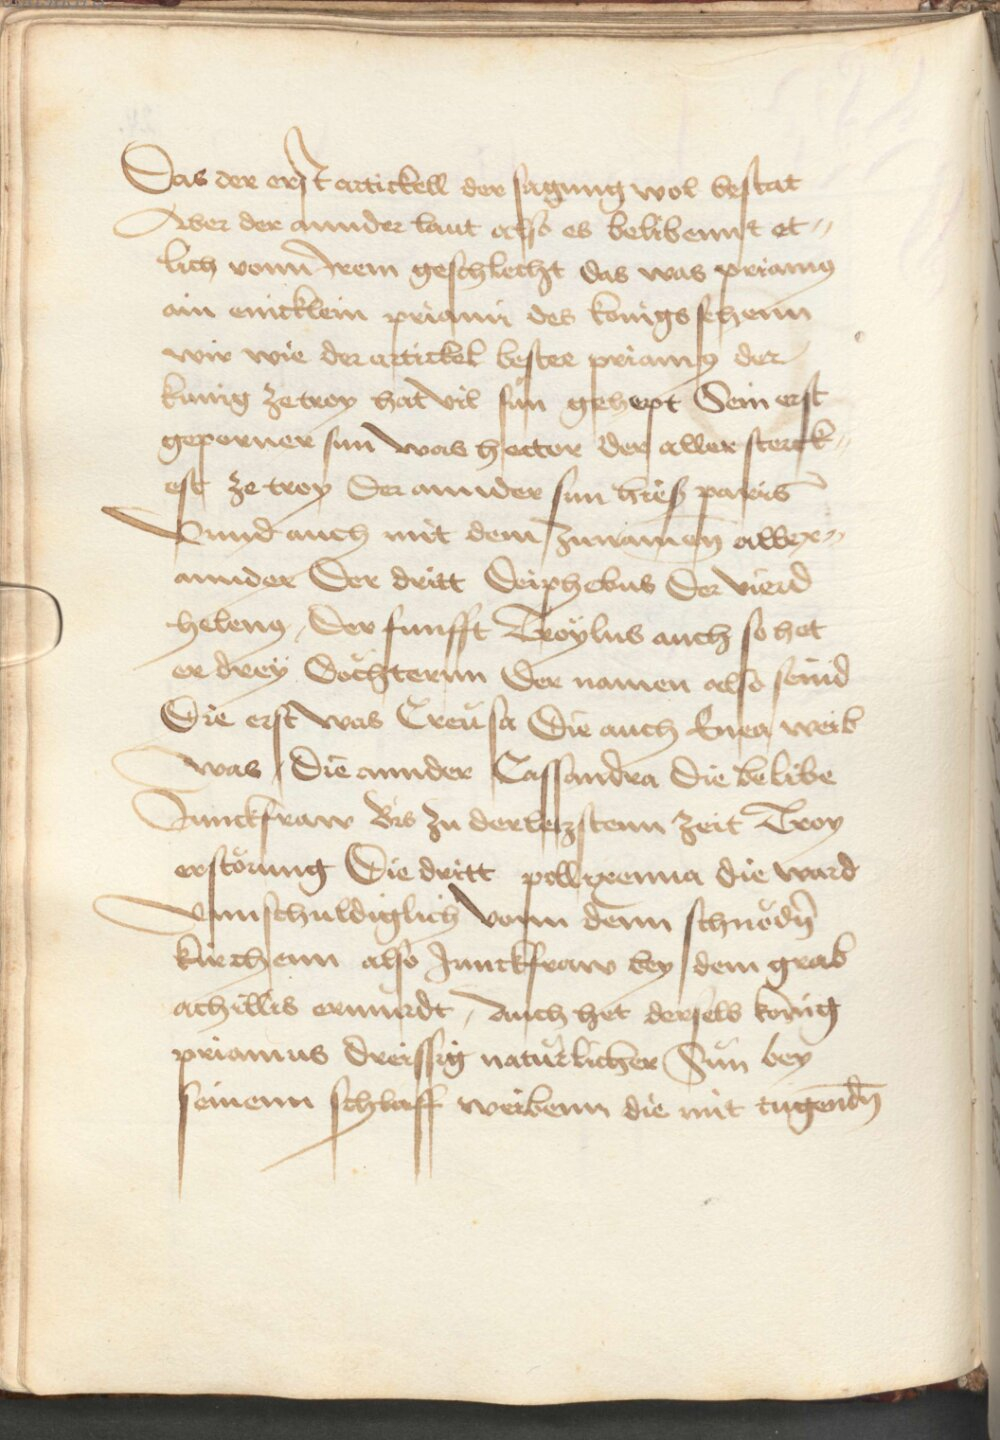 Das der erst artickell der sagung wol bestat
Aber der annder laut also es belibennt et-
lich vonn Irem geschlecht das was priamꝯ
ain enicklein priami des konigs sehenn
wir wie der artickel bestee priamꝯ der
kunig ze troy hat vil sün gehept Sein erst
geporner sun was hector der aller sterck-
est ze troy Der annder sun hieß paris
Vnnd auch mit dem zunamen̄ allex-
annder Der dritt Deiphebus Der vierd
helenꝯ, Der funfft Troÿlus auch so het
er dreÿ Döchternn Der namen also seind
Die erst was Creüsa Die auch Enea weib
was / Die annder Cassandra Die belibe
Junckfraw Bis zu der letzstenn zeit Troy
erstörung Die dritt pollixenna die ward
Vnnschuldiglich vonn denn schnödn̄
kirchenn also Junckfraw bey dem grab
achillis ermürdt, Auch het derselb konig
priamus dreissig natürlicher Sün bey
seinenn schlaff weibenn die mit tugendn̄